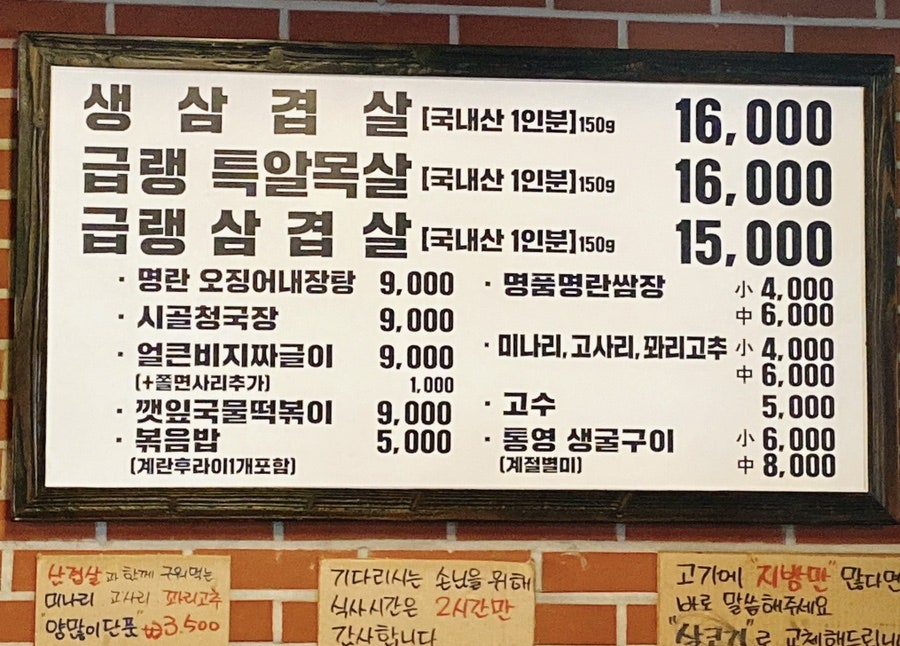 생 삼 겹 살 [국내산 1인분]150g 16,000
급랭 특알목살 [국내산 1인분]150g 16,000
급랭 삼 겹 살 [국내산 1인분]150g 15,000
· 명란 오징어내장탕 9,000
· 시골청국장 9,000
· 얼큰비지짜글이 9,000
(+쫄면사리추가) 1,000
· 깻잎국물떡볶이 9,000
· 볶음밥 5,000
(계란후라이1개포함)
· 명품명란쌈장 小 4,000
中 6,000
· 미나리, 고사리, 꽈리고추 小 4,000
中 6,000
· 고수 5,000
· 통영 생굴구이 小 6,000
(계절별미) 中 8,000
삼겹살과 함께 구워먹는
미나리 고사리 꽈리고추
"양많이단품" ₩3,500
기다리시는 손님을 위해
식사시간은 2시간만
감사합니다
고기에 "지방만" 많다면
바로 말씀해주세요
"살코기"로 교체해드리니